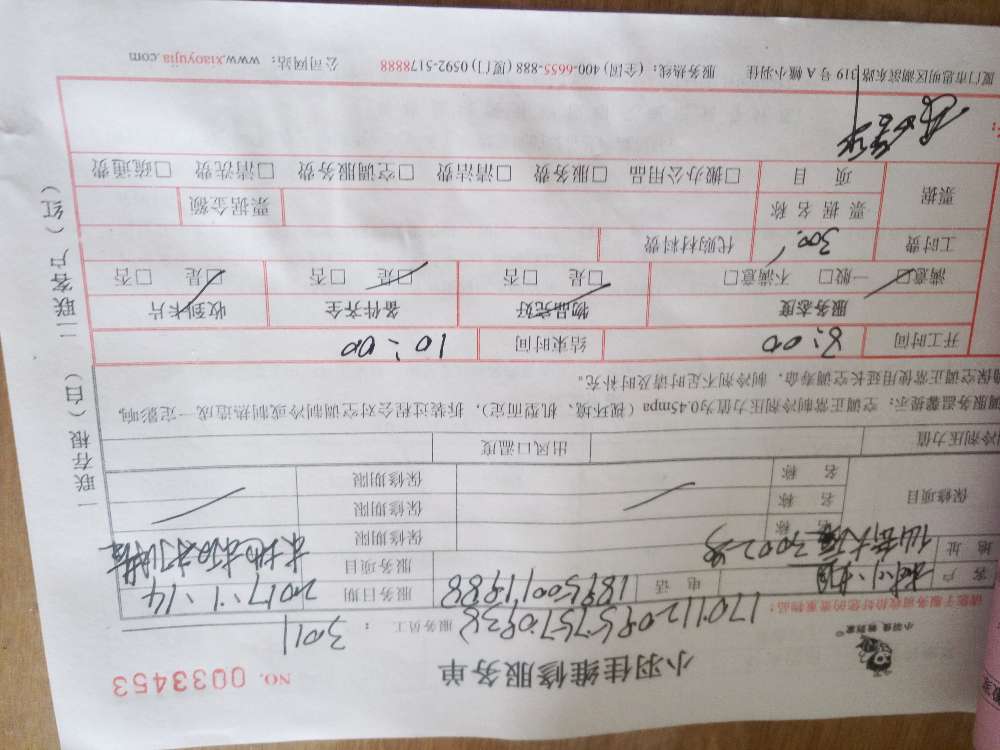 小羽佳维修服务单
NO. 0033453
小羽佳 物到家
服务员工： 3011
请您于服务前收拾好您的重要物品！
客 户
电 话 18950011988
服务日期 2017.1.14
地 址
服务项目
保修项目
名 称 保修期限
名 称 保修期限
名 称 保修期限
冷剂压力值 出风口温度
调服务温馨提示：空调正常制冷剂压力值为0.45mpa（视环境、机型而定），拆装过程会对空调制冷或制热造成一定影响，
确保空调正常使用延长空调寿命，制冷剂不足时请及时补充。
开工时间 8:00 结束时间 10:00
服务态度 物品完好 备件齐全 收到卡片
满意□ 一般□ 不满意□ □是 □否 □是 □否 □是 □否
工时费 300 代购材料费
票据 票 据 名 称 票据金额
项 目 □搬办公用品 □服务费 □清洁费 □空调服务费 □清洗费 □疏通费
厦门市思明区湖滨东路319号A幢小羽佳 服务热线：（全国）400-6655-888（厦门）0592-5178888 公司网站：www.xiaoyujia.com
一联存根（白） 二联客户（红）